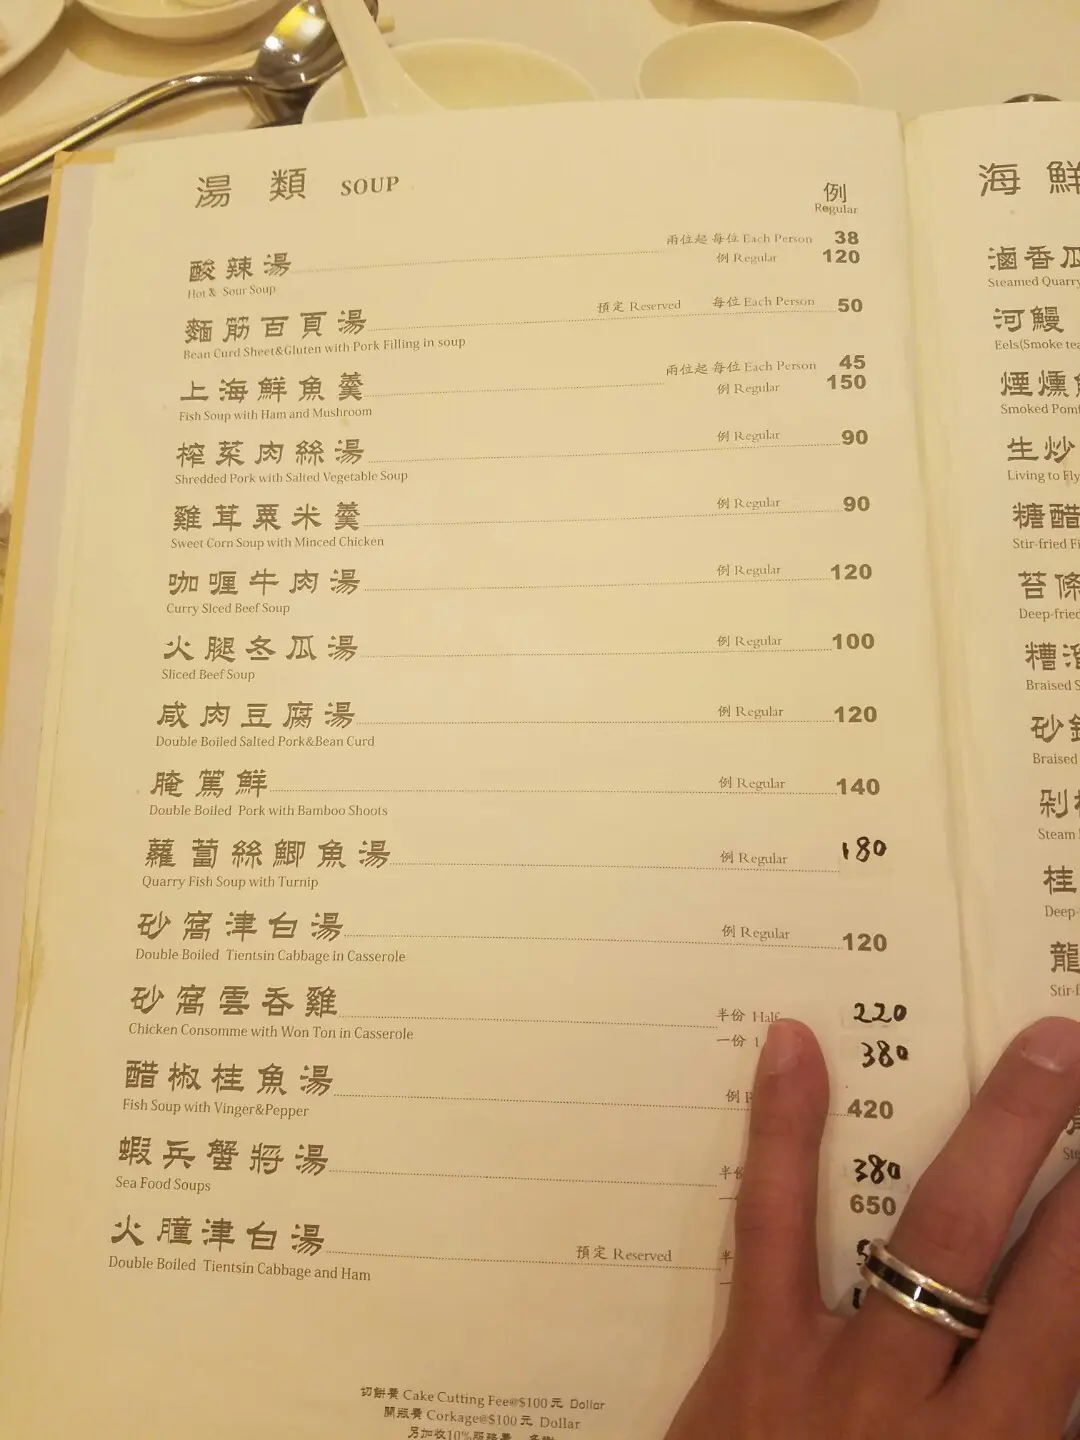 湯類 SOUP
例
Regular
酸辣湯 兩位起 每位 Each Person 38
Hot & Sour Soup 例 Regular 120
麵筋百頁湯 預定 Reserved 每位 Each Person 50
Bean Curd Sheet&Gluten with Pork Filling in soup
上海鮮魚羹 兩位起 每位 Each Person 45
Fish Soup with Ham and Mushroom 例 Regular 150
榨菜肉絲湯 例 Regular 90
Shredded Pork with Salted Vegetable Soup
雞茸粟米羹 例 Regular 90
Sweet Corn Soup with Minced Chicken
咖喱牛肉湯 例 Regular 120
Curry Slced Beef Soup
火腿冬瓜湯 例 Regular 100
Sliced Beef Soup
咸肉豆腐湯 例 Regular 120
Double Boiled Salted Pork&Bean Curd
腌篤鮮 例 Regular 140
Double Boiled Pork with Bamboo Shoots
蘿蔔絲鯽魚湯 例 Regular 180
Quarry Fish Soup with Turnip
砂窩津白湯 例 Regular 120
Double Boiled Tientsin Cabbage in Casserole
砂窩雲吞雞 半份 Half 220
Chicken Consomme with Won Ton in Casserole 一份 1 380
醋椒桂魚湯 例 420
Fish Soup with Vinger&Pepper
蝦兵蟹將湯 半 380
Sea Food Soups 一 650
火膧津白湯 預定 Reserved 半
Double Boiled Tientsin Cabbage and Ham 一
切餅費 Cake Cutting Fee@$100元 Dollar
開瓶費 Corkage@$100元 Dollar
另加收10%服務費
海鮮
滷香瓜
Steamed Quarry
河鰻
Eels(Smoke tea
煙燻
Smoked Pomf
生炒
Living to Fly
糖醋
Stir-fried Fi
苔條
Deep-fried
糟溜
Braised S
砂
Braised
剁
Steam
桂
Deep-
龍
Stir-f